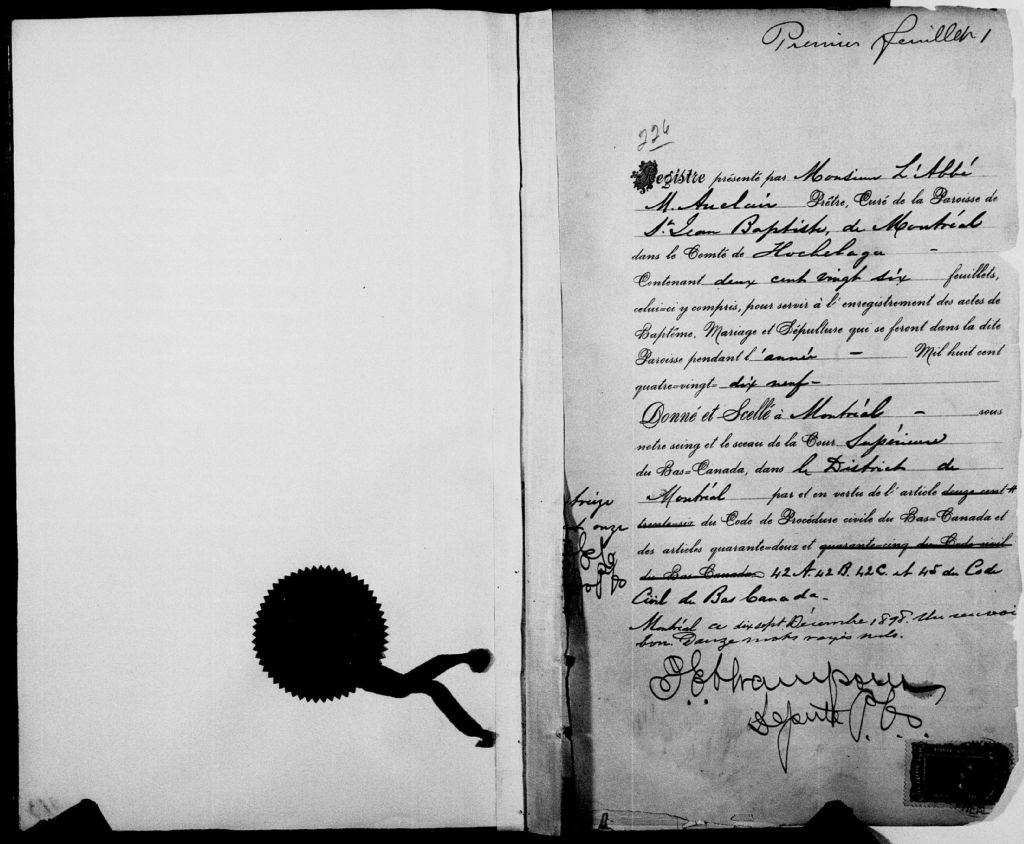 Premier feuillet 1
226
Registre présenté par Monsieur L'Abbé
M. Auclair Prêtre, Curé de la Paroisse de
St. Jean Baptiste, de Montréal
dans le Comté de Hochelaga -
Contenant deux cent vingt six feuillets,
celui=ci y compris, pour servir à l'enregistrement des actes de
Baptême, Mariage et Sépulture qui se feront dans la dite
Paroisse pendant l'année - Mil huit cent
quatre=vingt= dix neuf -
Donné et Scellé à Montréal - sous
notre seing et le sceau de la Cour Supérieure
du Bas=Canada, dans le District de
Montréal par et en vertu de l'article douze cent
trente-six du Code de Procédure civile du Bas=Canada et
des articles quarante=deux et quarante=cinq du Code civil
du Bas Canada 42 A. 42 B. 42 C. et 45 du Code
Civil du Bas Canada -
Montréal ce dix sept Décembre 1898. Un renvoi
bon. Douze mots rayés nuls.
treize
et onze
Député P. C. S.